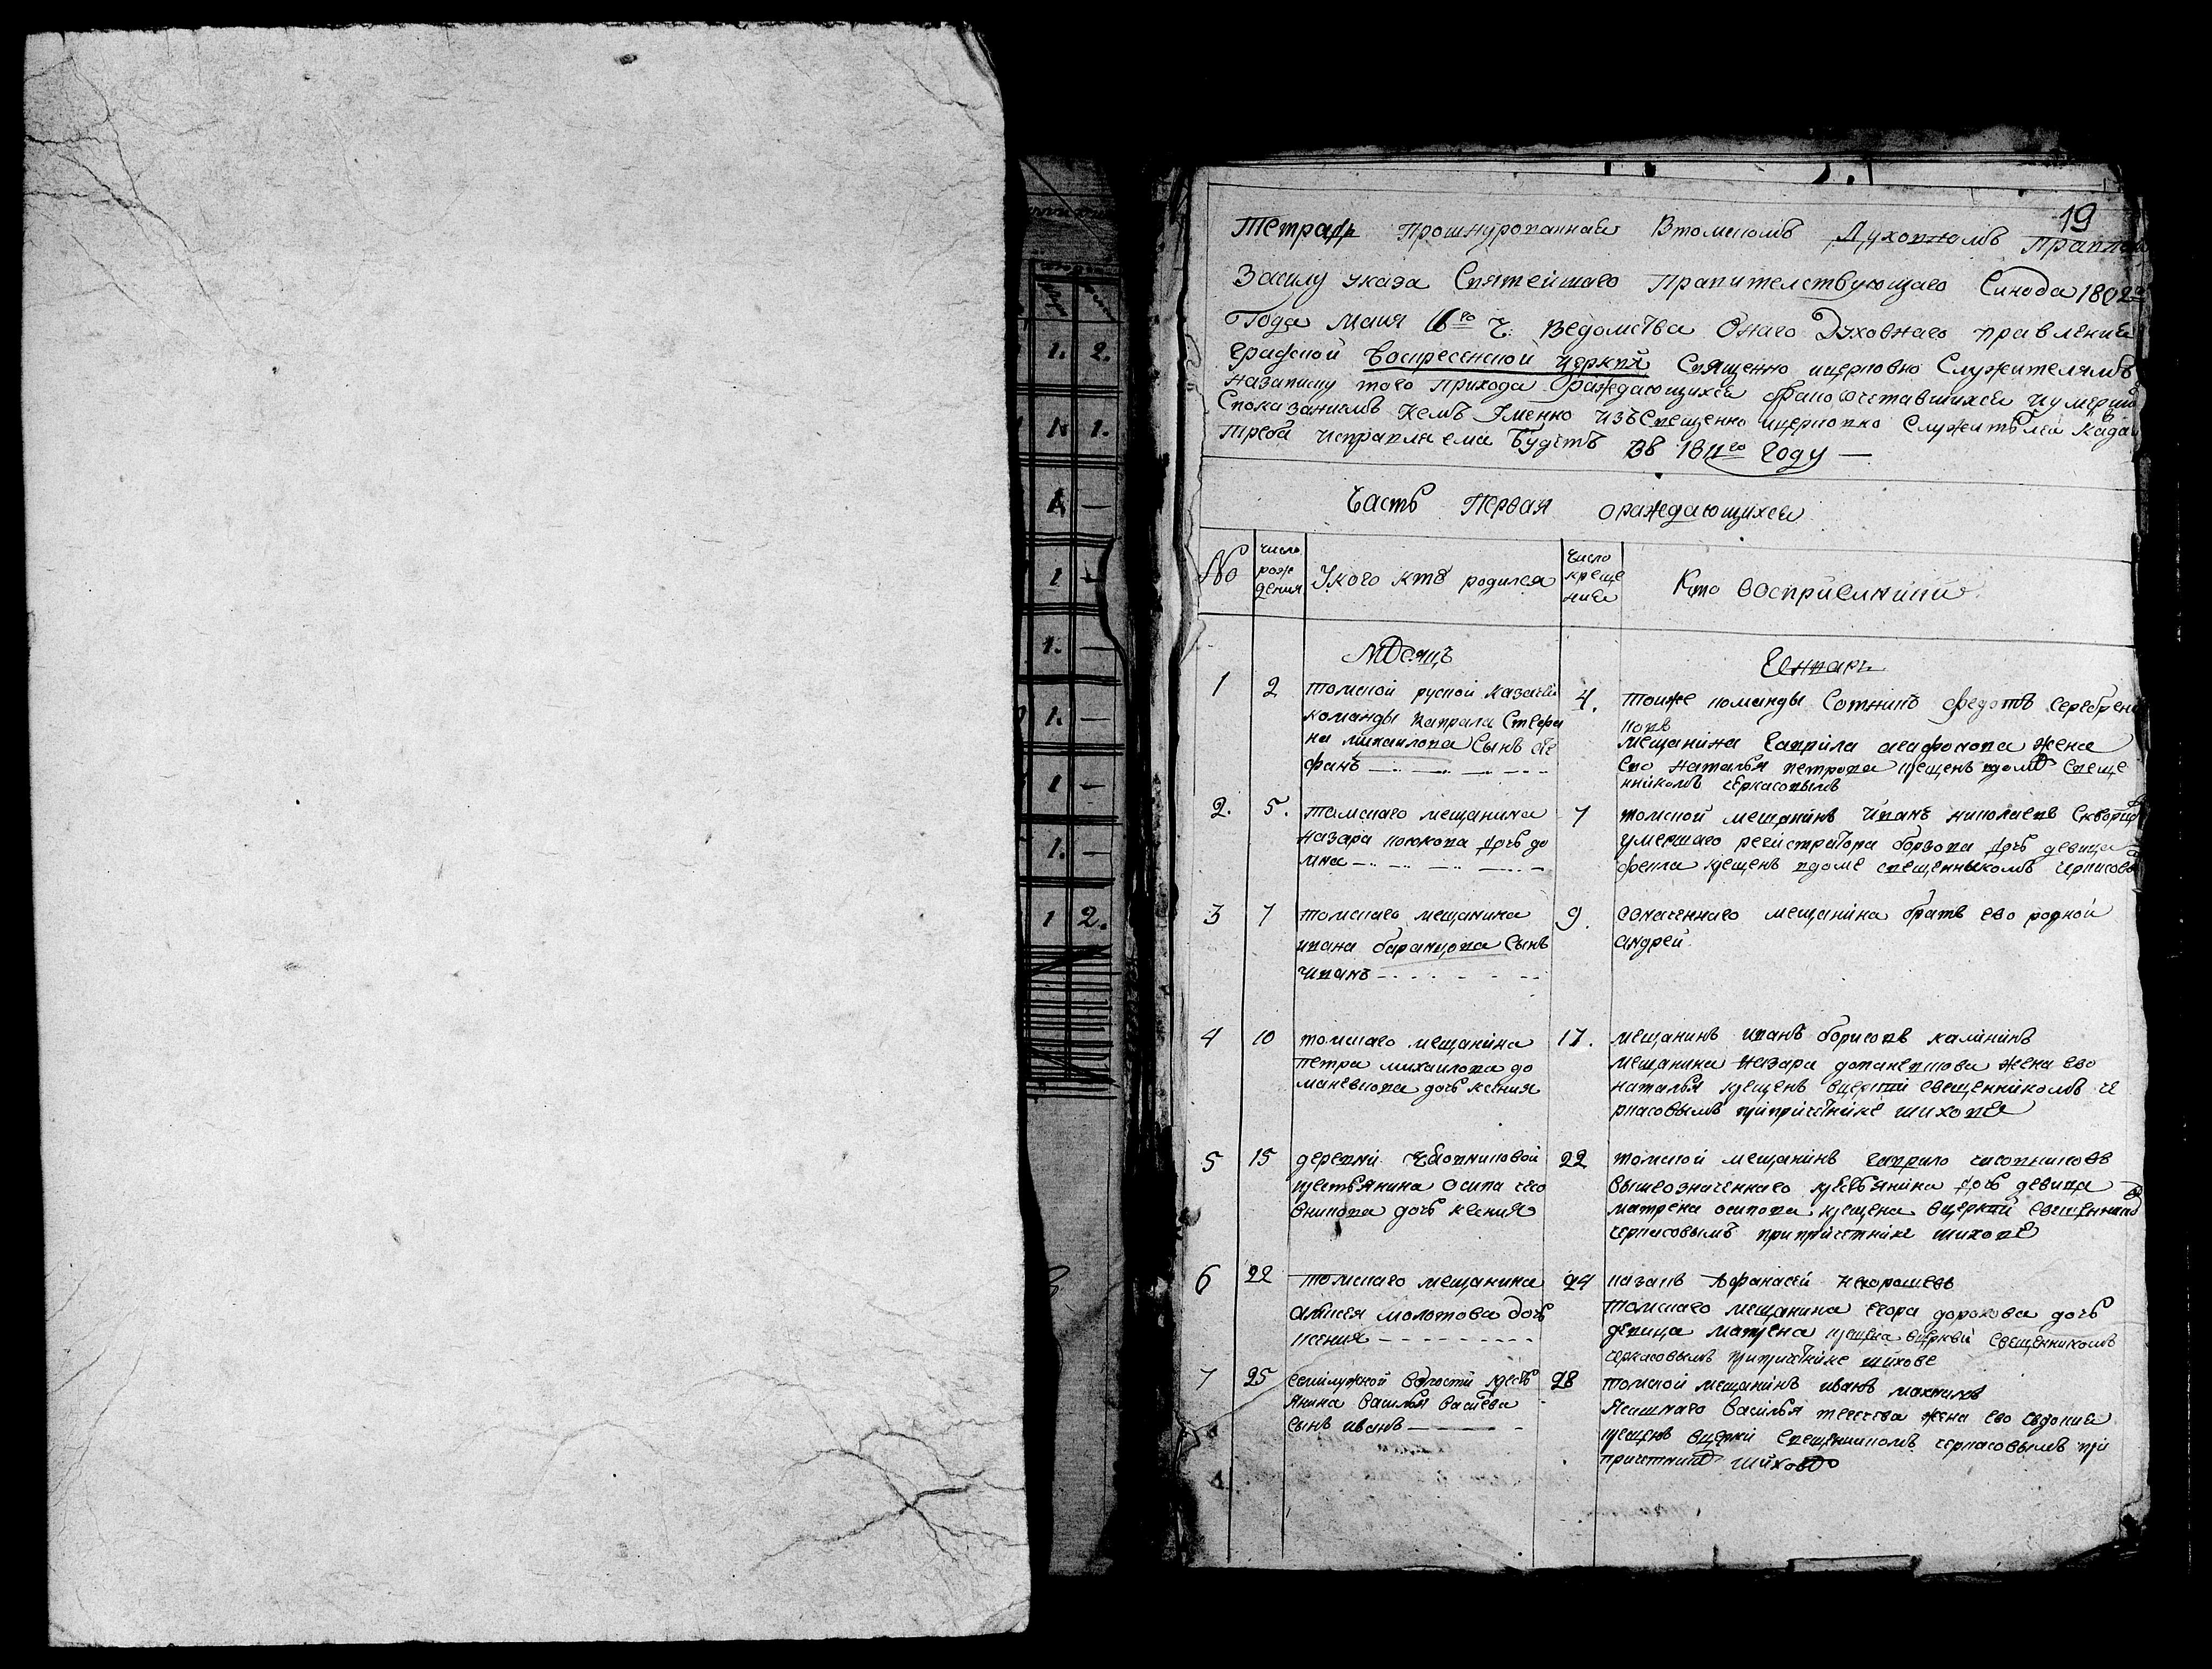 19
Тетрадь Прошнурованная Втомскомъ Духовномъ Правлен
Всилу указа Святейшаго Правителствующаго Синода 1802го
Года Маия Ч. Ведомства Онаго Духовнаго правления
градской Воскресенской церкви Священно ицерковно Служителямъ
Назаписку того прихода Ораждающихся бракосочетавшихся иумерш
Споказаниемъ Кемъ Именно изъСвещенно ицерковно Служителей Кажда
Треба исправляема Будетъ Въ 1811го Году —
Часть Первая ораждающихся
№
число рож дения
Укого кто родился
Число креще ния
Кто восприемники
Мѣсяцъ
Генварь
1
2
томской руской казачей
команды капрала Стефа
на михаилова Сынъ сте
фанъ
4.
тоиже команды Сотникъ Федотъ Серебрени
ковъ
мещанина Гаврила агафонова жена
ево наталья петрова крещенъ вдомѣ свеще
нникомъ черкасовымъ
2.
5.
томскаго мещанина
назара кокова дочь до
мна
7
томской мещанинъ иванъ николаевъ Скворц
умершаго регистратора борзова дочь девица
фекла крещенъ вдоме свещенникомъ черкасовы
3
7
томскаго мещанина
ивана баранцова Сынъ
иванъ
9.
означеннаго мещанина братъ ево родной
андрей
4
10
томскаго мещанина
петра михаилова до
маневскова дочь ксения
17.
мещанинъ иванъ борисовъ калининъ
мещанина назара жена ево
наталья крещенъ вцеркви свещенникомъ че
ркасовымъ припричетнике шихове
5
15
деревни Чесовниковой
крестьянина осипа чесо
вникова дочь ксения
22
томской мещанинъ гаврило чесовниковъ
вышеозначеннаго крестьянина дочь девица
матрена осипова крещена вцеркви свещенником
черкасовымъ припричетнике шихове
6
22
томскаго мещанина
алексея молотова дочь
ксения
24
казакъ Афанасей Некорошевъ
томскаго мещанина егора дорохова дочь
девица матрена крещена вцеркви свещенникомъ
черкасовымъ припричетнике шихове
7
25
Семилужной волости крестъ
янина василья васиева
сынъ иванъ
28
томской мещанинъ иванъ махневъ
Ясашнаго василья жена ево евдокия
крещенъ вцеркви свещенникомъ черкасовымъ при
причетникѣ шиховѣ
1. 2.
1.
1
1.
1.
1
1.
1 2.